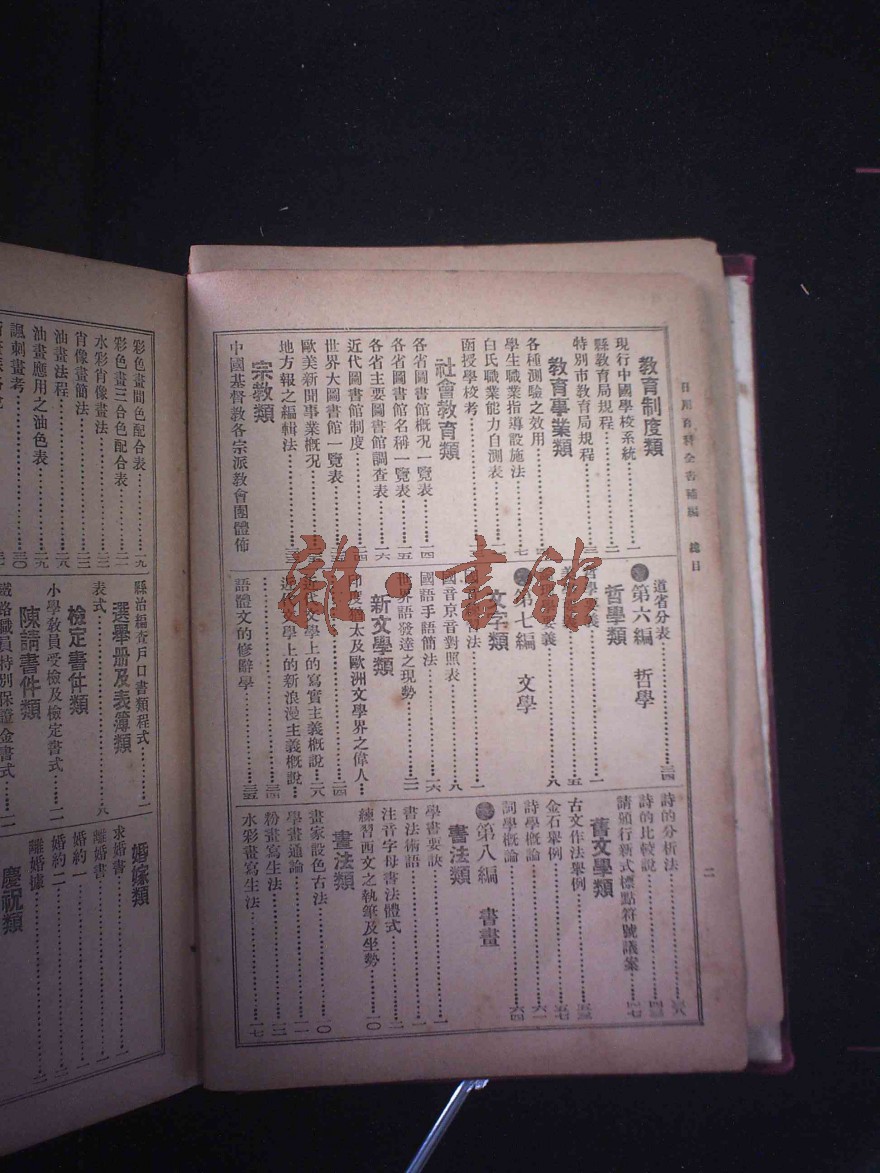 日用百科全書補編 總目
二
教育制度類
現行中國學校系統……一
縣教育局規程……二
特別市教育局規程……三
教育事業類
各種測驗之效用……四
學生職業指導設施法……七
白氏職業能力自測表……
函授學校考……
社會教育類
各省圖書館概況一覽表……一四
各省圖書館名稱一覽表……一五
各省主要圖書館調查表……一六
近代圖書館制度……
世界大圖書館一覽表……
歐美新聞事業概況……
地方報之編輯法……
宗教類
中國基督教各宗派教會團體佈
道省分表……三四
第六編 哲學
哲學類
第七編 文學
文字類
國音京音對照表……八
國語手語簡法……一六
世界語發達之現勢……二一
新文學類
印度猶太及歐洲文學界之偉人……二四
文學上的寫實主義概說……二八
近代文學上的新浪漫主義概說……
……三四
語體文的修辭學……三五
詩的分析法……三八
詩的比較說……四三
請頒行新式標點符號議案……四七
舊文學類
古文作法舉例……五三
金石舉例……五七
詩學概論……六一
詞學概論……六四
第八編 書畫
書法類
學書要訣……一
書法術語……一
注音字母書法體式……二
練習西文之執筆及坐勢……一〇
畫法類
畫家設色古法……一〇
學畫通論……一一
粉畫寫生法……一三
水彩畫寫生法……一七
彩色畫間色配合表……一九
彩色畫三合色配合表……二一
水彩肖像畫法……二三
肖像畫簡法……二三
油畫法程……二八
油畫應用之油色表……二九
諷刺畫考……三〇
縣治編查戶口書類程式……一
表式……八
選舉册及表簿類
檢定書件類
小學教員受檢及檢定書式……一一
陳請書件類
鐵路職員特別保證金書式……一二
婚嫁類
求婚書……一
離婚書……一
婚約一……一
婚約二……二
離婚據……二
慶祝類
雜·書館